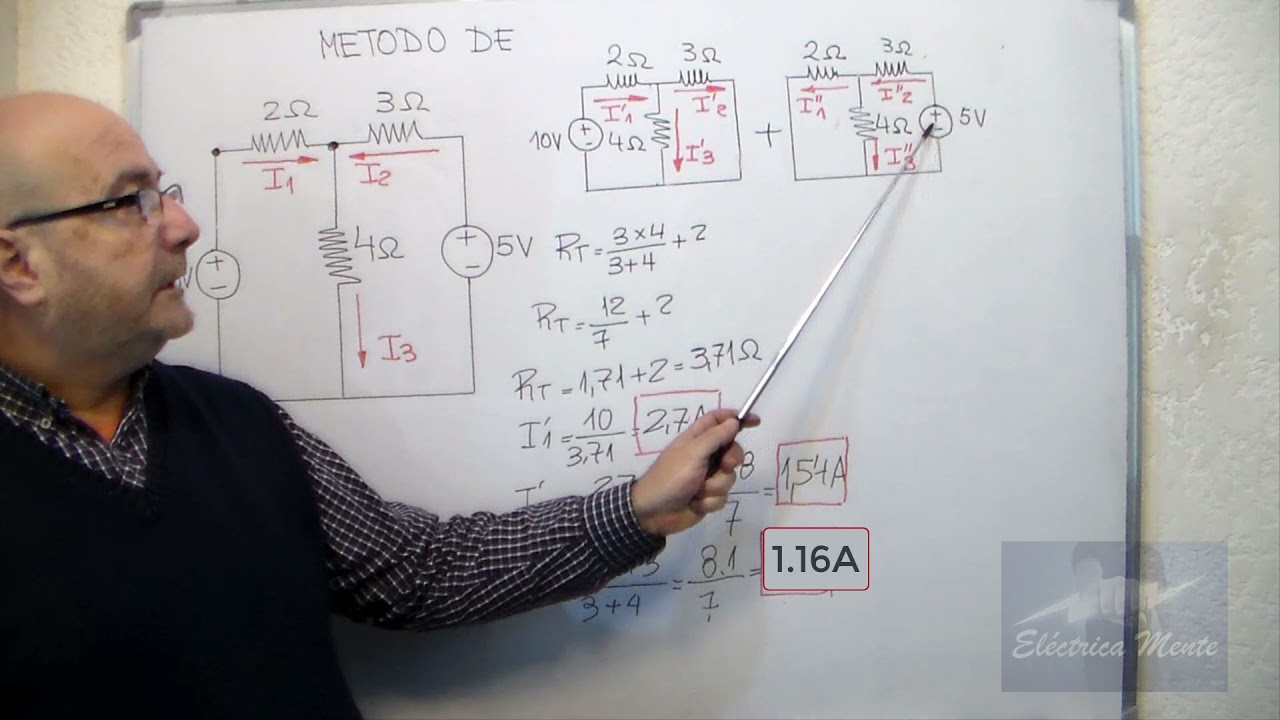 METODO DE
2Ω 3Ω
I1 I2
4Ω
V 5V
I3
2Ω 3Ω
I'1 I'2
10V 4Ω
I'3
+
2Ω 3Ω
I''1 I''2
4Ω 5V
I''3
RT = 3x4/3+4 + 2
RT = 12/7 + 2
RT = 1,71 + 2 = 3,71Ω
I'1 = 10/3,71 = 2,7A
8/7 = 1,54A
3+4 = 8.1/7 = 1.16A
Eléctrica Mente